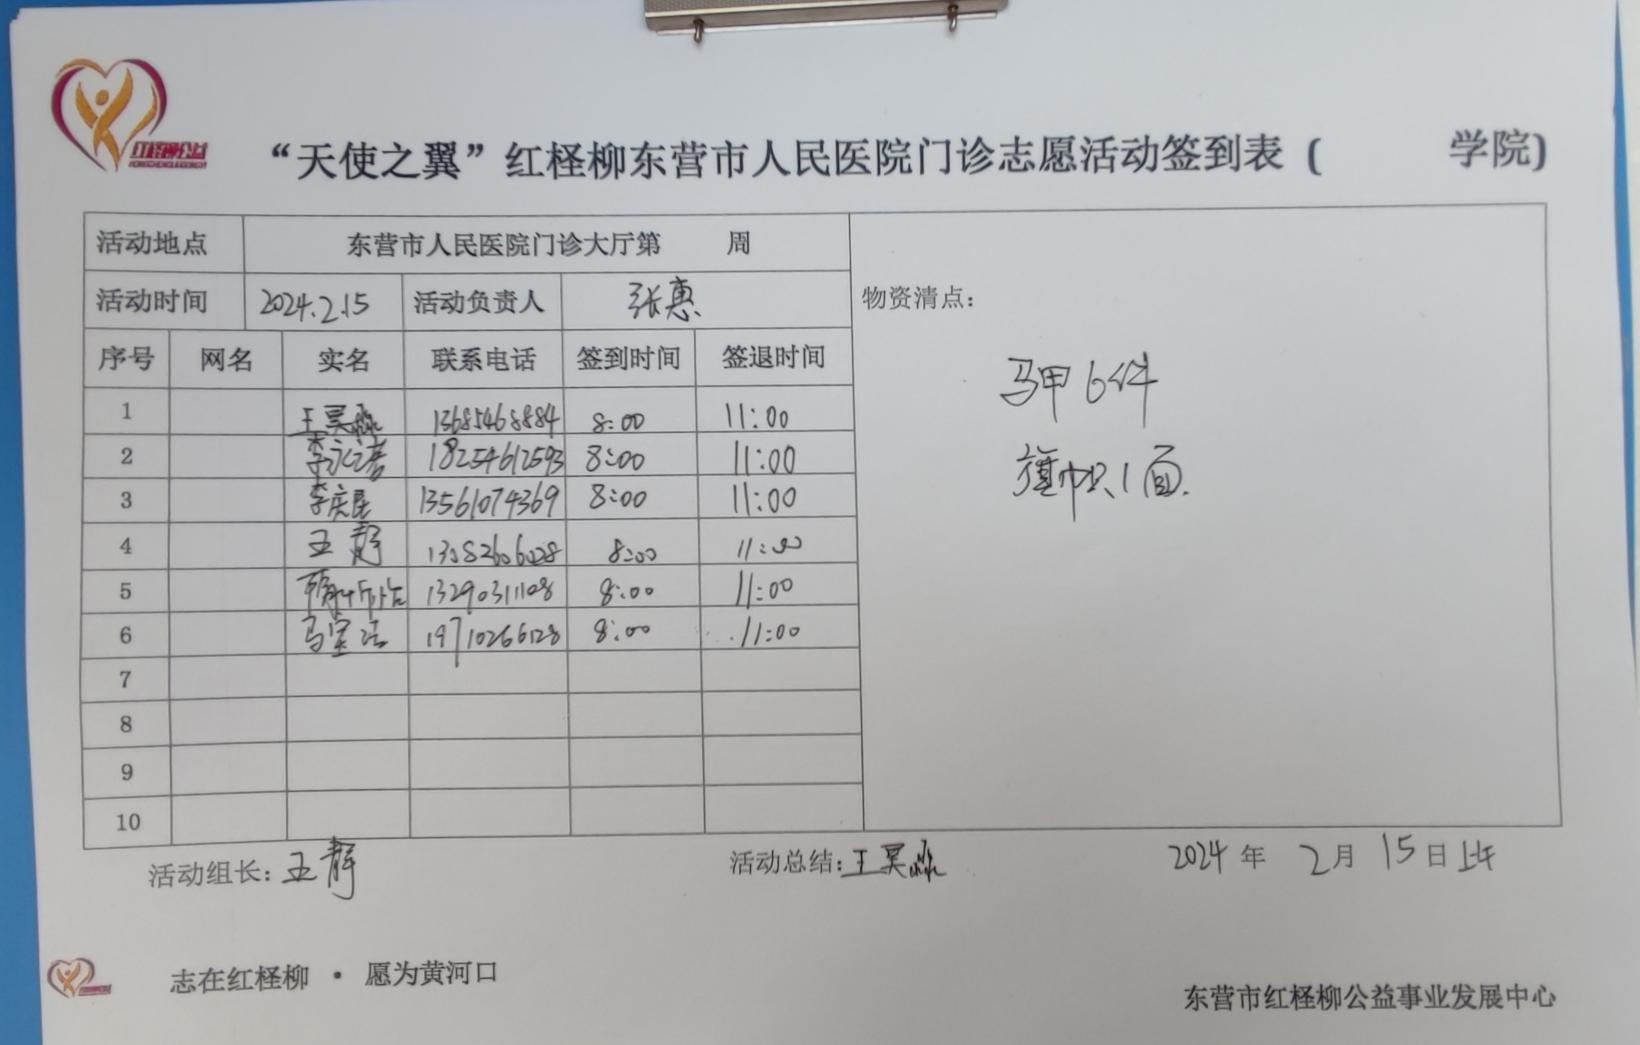 红柽柳公益
“天使之翼”红柽柳东营市人民医院门诊志愿活动签到表 ( 学院)
活动地点 东营市人民医院门诊大厅第 周
活动时间 2024.2.15 活动负责人 张惠
物资清点：
序号 网名 实名 联系电话 签到时间 签退时间
马甲6件
旗帜1面.
1 王昊淼 13685468884 8:00 11:00
2 18254612593 8:00 11:00
3 李庆昆 13561074369 8:00 11:00
4 王静 13082606028 8:00 11:00
5 13290311108 8:00 11:00
6 19710266128 8:00 11:00
7
8
9
10
活动组长：王静 活动总结：王昊淼 2024年 2月 15日上午
志在红柽柳 · 愿为黄河口
东营市红柽柳公益事业发展中心